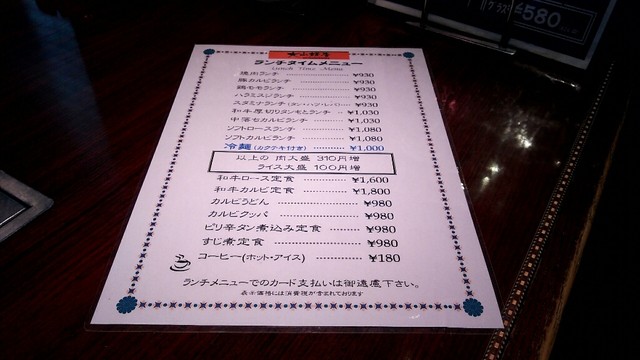 ランチタイムメニュー
Lunch Time Menu
焼肉ランチ ¥930
豚カルビランチ ¥930
鶏モモランチ ¥930
ハラミスジランチ ¥930
スタミナランチ(タン・ハツ・レバー) ¥930
和牛厚切りタンモとランチ ¥1,030
中落セカルビランチ ¥1,030
ソフトロースランチ ¥1,080
ソフトカルビランチ ¥1,080
冷麺(カクテキ付き) ¥1,000
以上の 肉大盛 310円増
ライス大盛 100円増
和牛ロース定食 ¥1,600
和牛カルビ定食 ¥1,800
カルビうどん ¥980
カルビクッパ ¥980
ピリ辛タン煮込み定食 ¥980
すじ煮定食 ¥980
コーヒー(ホット・アイス) ¥180
ランチメニューでのカード支払いは御遠慮下さい。
表示価格には消費税が含まれております
グラス ¥580